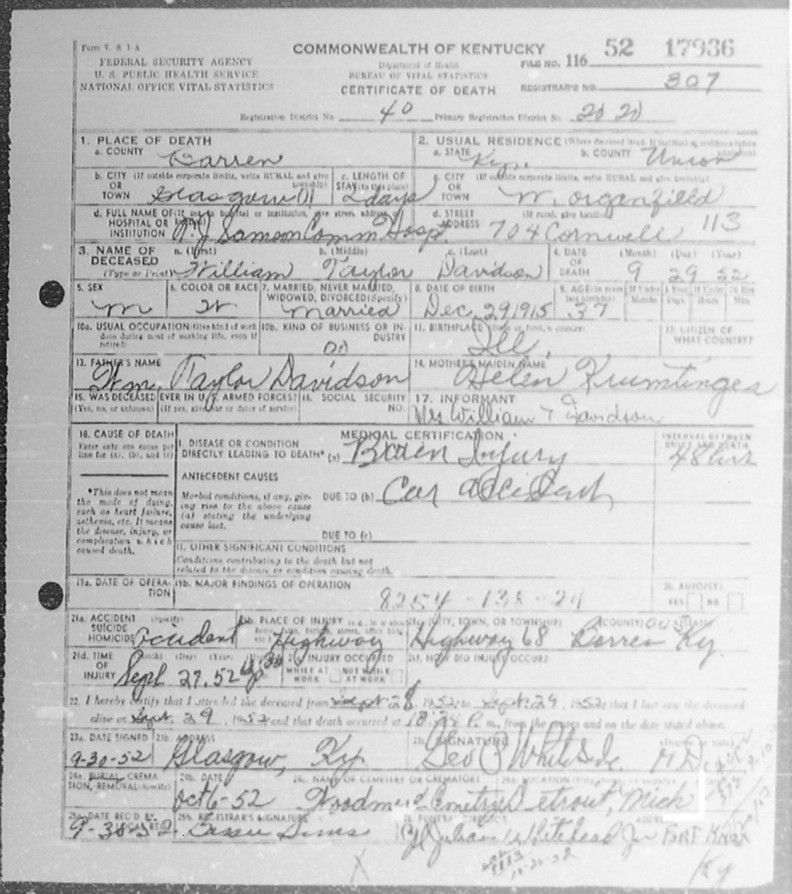 Form V. S. 1-A
FEDERAL SECURITY AGENCY
U. S. PUBLIC HEALTH SERVICE
NATIONAL OFFICE VITAL STATISTICS
COMMONWEALTH OF KENTUCKY
Department of Health
BUREAU OF VITAL STATISTICS
CERTIFICATE OF DEATH
FILE NO. 116 52 17936
REGISTRAR'S NO. 307
Registration District No. 40 Primary Registration District No. 2020
1. PLACE OF DEATH
a. COUNTY Barren
2. USUAL RESIDENCE
a. STATE Ky. b. COUNTY Union
b. CITY (If outside corporate limits, write RURAL and give township)
OR TOWN Glasgow
c. LENGTH OF STAY (in this place) 2 days
c. CITY (If outside corporate limits, write RURAL and give township)
OR TOWN Morganfield
d. FULL NAME OF HOSPITAL OR INSTITUTION T. J. Samson Comm. Hosp.
d. STREET ADDRESS 704 Cornwell 113
3. NAME OF DECEASED (Type or Print)
a. (First) b. (Middle) c. (Last)
William Taylor Davidson
4. DATE OF DEATH (Month) (Day) (Year)
9 29 52
5. SEX M
6. COLOR OR RACE W
7. MARRIED, NEVER MARRIED, WIDOWED, DIVORCED (Specify) Married
8. DATE OF BIRTH Dec. 29, 1915
9. AGE 37
10a. USUAL OCCUPATION (Give kind of work done during most of working life, even if retired)
10b. KIND OF BUSINESS OR INDUSTRY
11. BIRTHPLACE Ill.
12. CITIZEN OF WHAT COUNTRY?
13. FATHER'S NAME
Wm. Taylor Davidson
14. MOTHER'S MAIDEN NAME
Helen
15. WAS DECEASED EVER IN U. S. ARMED FORCES?
(Yes, no, or unknown) (If yes, give war or dates of service)
16. SOCIAL SECURITY NO.
17. INFORMANT
Mrs William T Davidson
18. CAUSE OF DEATH
Enter only one cause per line for (a), (b), and (c)
*This does not mean the mode of dying, such as heart failure, asthenia, etc. It means the disease, injury, or complication which caused death.
MEDICAL CERTIFICATION
I. DISEASE OR CONDITION DIRECTLY LEADING TO DEATH* (a) Brain Injury
INTERVAL BETWEEN ONSET AND DEATH
48 hrs
ANTECEDENT CAUSES
Morbid conditions, if any, giving rise to the above cause (a) stating the underlying cause last.
DUE TO (b) Car accident
DUE TO (c)
II. OTHER SIGNIFICANT CONDITIONS
Conditions contributing to the death but not related to the disease or condition causing death.
19a. DATE OF OPERATION
19b. MAJOR FINDINGS OF OPERATION
8254-138-29
20. AUTOPSY?
YES NO
21a. ACCIDENT SUICIDE HOMICIDE (Specify) Accident
21b. PLACE OF INJURY Highway
21c. (CITY, TOWN, OR TOWNSHIP) (COUNTY) (STATE)
Highway 68 Barren Ky.
21d. TIME OF INJURY (Month) (Day) (Year) (Hour)
Sept 27, 52
21e. INJURY OCCURRED
WHILE AT WORK NOT WHILE AT WORK
21f. HOW DID INJURY OCCUR?
22. I hereby certify that I attended the deceased from Sept 28, 1952, to Sept. 29, 1952, that I last saw the deceased
alive on Sept. 29, 1952 and that death occurred at P. m., from the causes and on the date stated above.
23a. DATE SIGNED 9-30-52
23b. ADDRESS Glasgow, Ky.
23c. SIGNATURE
24a. BURIAL, CREMATION, REMOVAL (Specify)
24b. DATE Oct 6-52
24c. NAME OF CEMETERY OR CREMATORY
24d. LOCATION
Detroit, Mich
25a. DATE REC'D BY LOCAL REG.
25b. REGISTRAR'S SIGNATURE
Whitehead Jr FORT KNOX
Ky